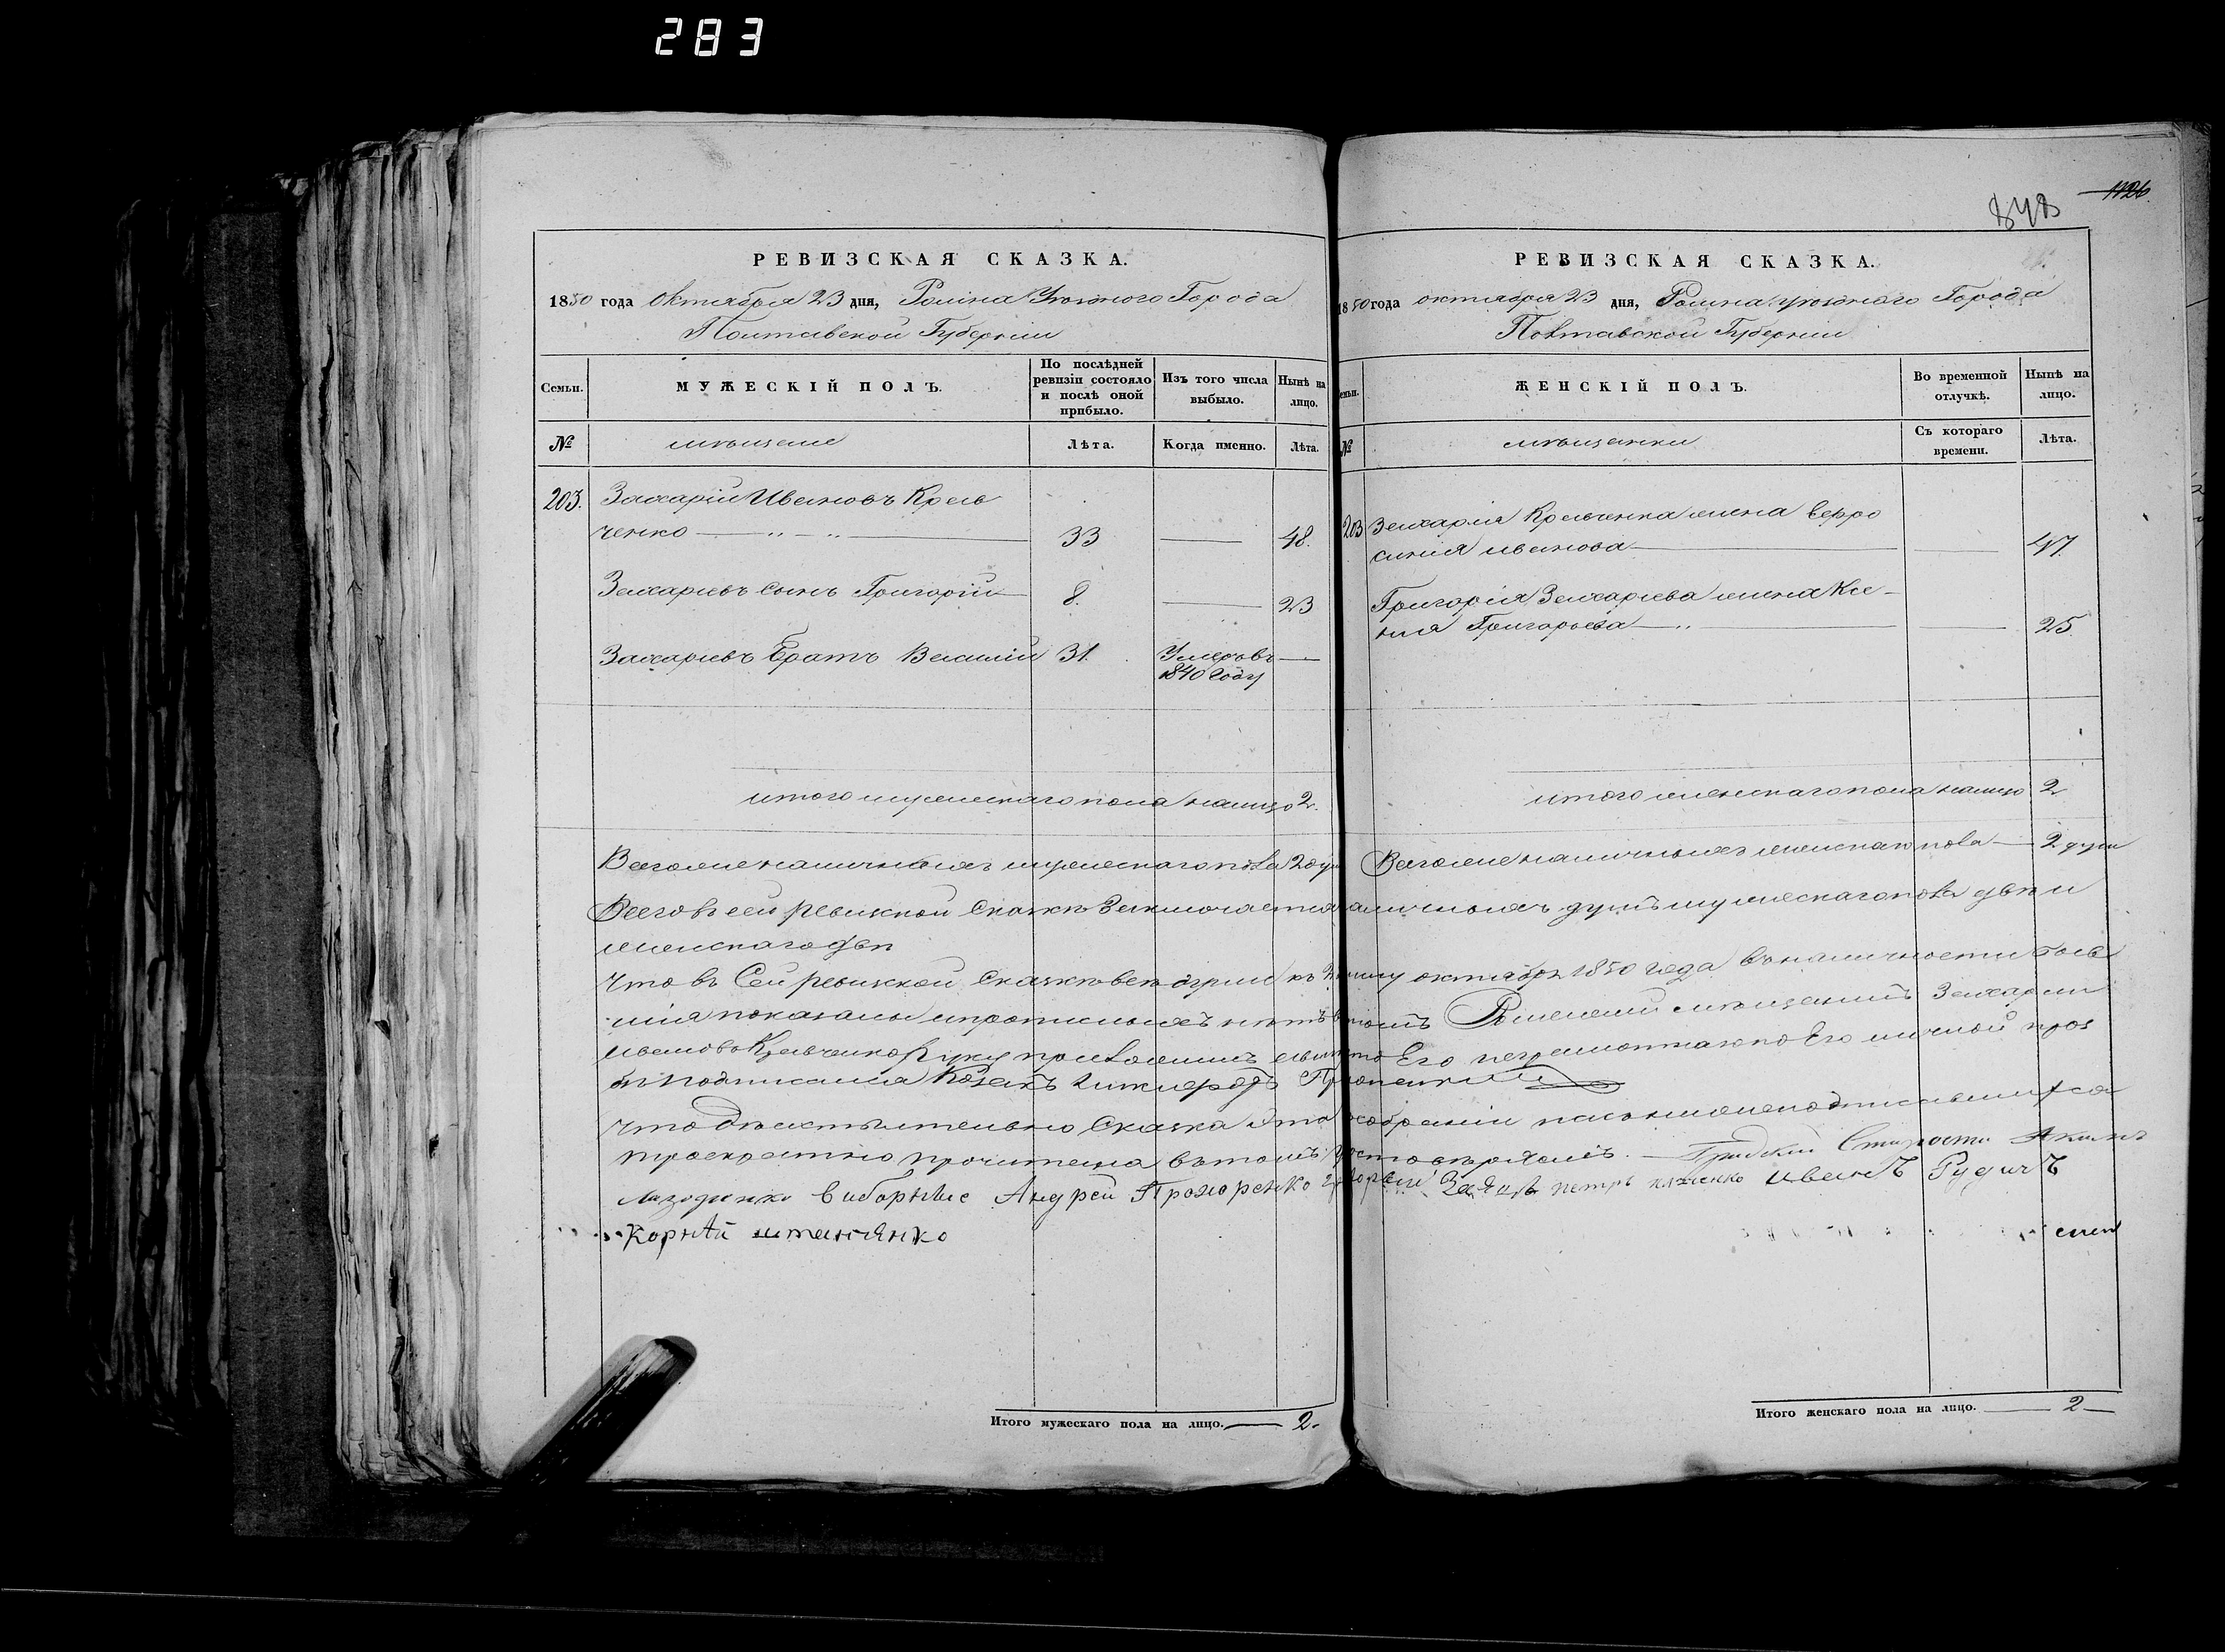 283
1126.
РЕВИЗСКАЯ СКАЗКА.
1850 года Октября 23 дня, Ромна Уѣзднаго Города
Полтавской Губерніи
Семьи.
МУЖЕСКІЙ ПОЛЪ.
По послѣдней ревизіи состояло и послѣ оной прибыло.
Изъ того числа выбыло.
Нынѣ на лицо.
№
мѣщане
Лѣта.
Когда именно.
Лѣта.
203. Захарій Ивановъ Крав
ченко 33 48.
Захаріевъ сынъ Григорій 8. 23
Захаріевъ братъ Василій 31. Умеръ въ
1840 году
итого мужескаго пола налицо 2.
Всего же наличныхъ мужескаго пола 2 душ
РЕВИЗСКАЯ СКАЗКА.
1850 года октября 23 дня, Ромна уѣзднаго Города
Полтавской Губерніи
ЖЕНСКІЙ ПОЛЪ.
Во временной отлучкѣ.
Нынѣ на лицо.
№
мѣщанки
Съ котораго времени.
Лѣта.
203 Захарія Кравченка жена Евфро
синія Иванова 47.
Григорія Захарьева жена Ксе-
нія Григорьева 25.
итого женскаго пола налицо 2
Всего же наличныхъ женскаго пола 2 души
Всего въ сей ревизской сказкѣ заключается наличныхъ душъ мужескаго пола двѣ и
женскаго двѣ
Что въ сей ревизской сказкѣ всѣ души къ октября 1850 года въ наличности
показаны и прописныхъ нѣтъ въ томъ Роменскій мѣщанинъ Захарій
Ивановъ Кравченко а вмѣсто его неграмотнаго по его личной прозь
бѣ подписался Козакъ
Что дѣйствительно сказка эта собраніи
троекратно прочитана въ томъ удостовѣряемъ. Градскій Староста Акимъ
виборные Андрей Прохоренко Григорій Заяцъ петръ иванъ Рудичъ
Корнѣй
Итого мужескаго пола на лицо. 2.
Итого женскаго пола на лицо. 2